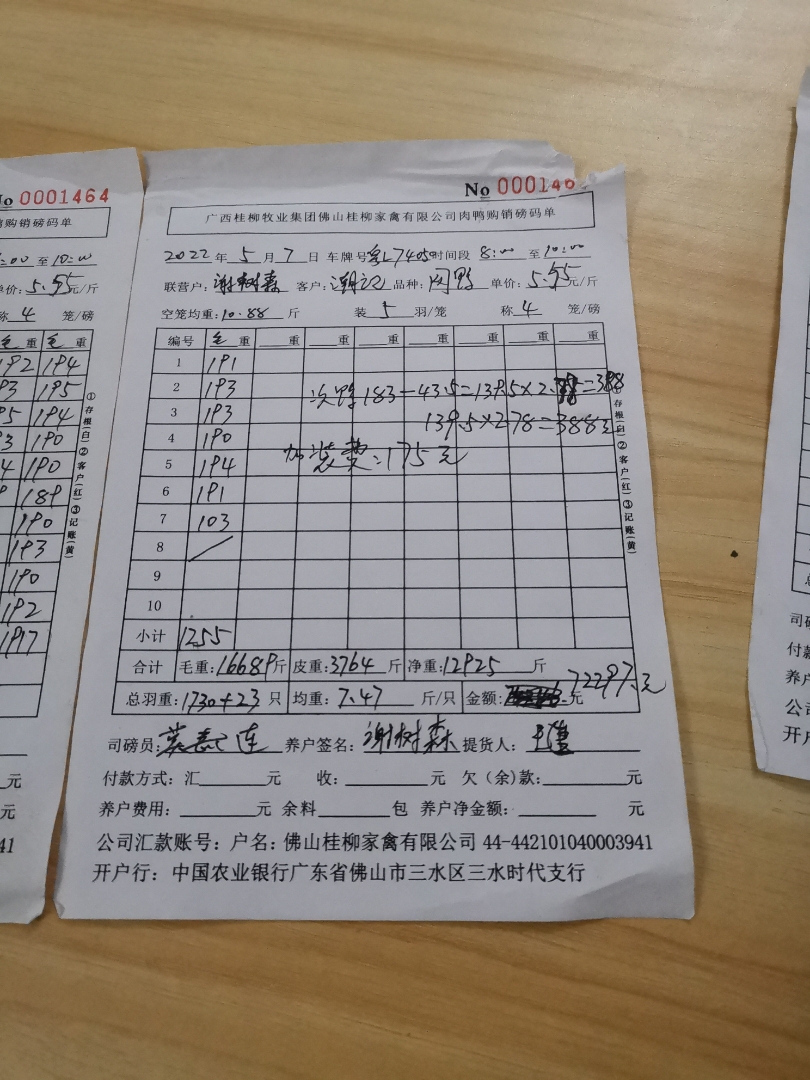 No 0001464
购销磅码单
:00 至 10:00
单价: 5.95 元/斤
称 4 笼/磅
毛 重 毛 重
192 194
93 195
95 194
93 190
94 190
189
190
193
190
192
1917
①存根(白)②客户(红)③记账(黄)
元
元
41
No 000146
广西桂柳牧业集团佛山桂柳家禽有限公司肉鸭购销磅码单
2022 年 5 月 7 日 车牌号 L7405 时间段 8:00 至 10:00
联营户: 谢树森 客户: 潮记 品种: 肉鸭 单价: 5.95 元/斤
空笼均重: 10.88 斤 装 5 羽/笼 称 4 笼/磅
编号 毛 重 重 重 重 重 重 重 重
1 191
2 193 次鸭 183-43.5=139.5×2. =388
3 193 139.5×2.78=388元
4 190
5 194 加装费:175元
6 191
7 103
8
9
10
小计 1255
合计 毛重: 16689 斤 皮重: 3764 斤 净重: 12925 斤
总羽重: 1730+23 只 均重: 7.47 斤/只 金额: 元 77297元
司磅员: 养户签名: 谢树森 提货人:
付款方式: 汇 元 收: 元 欠(余)款: 元
养户费用: 元 余料 包 养户净金额: 元
公司汇款账号: 户名: 佛山桂柳家禽有限公司 44-442101040003941
开户行: 中国农业银行广东省佛山市三水区三水时代支行
①存根(白)②客户(红)③记账(黄)
司磅
付款
养户
公
开户